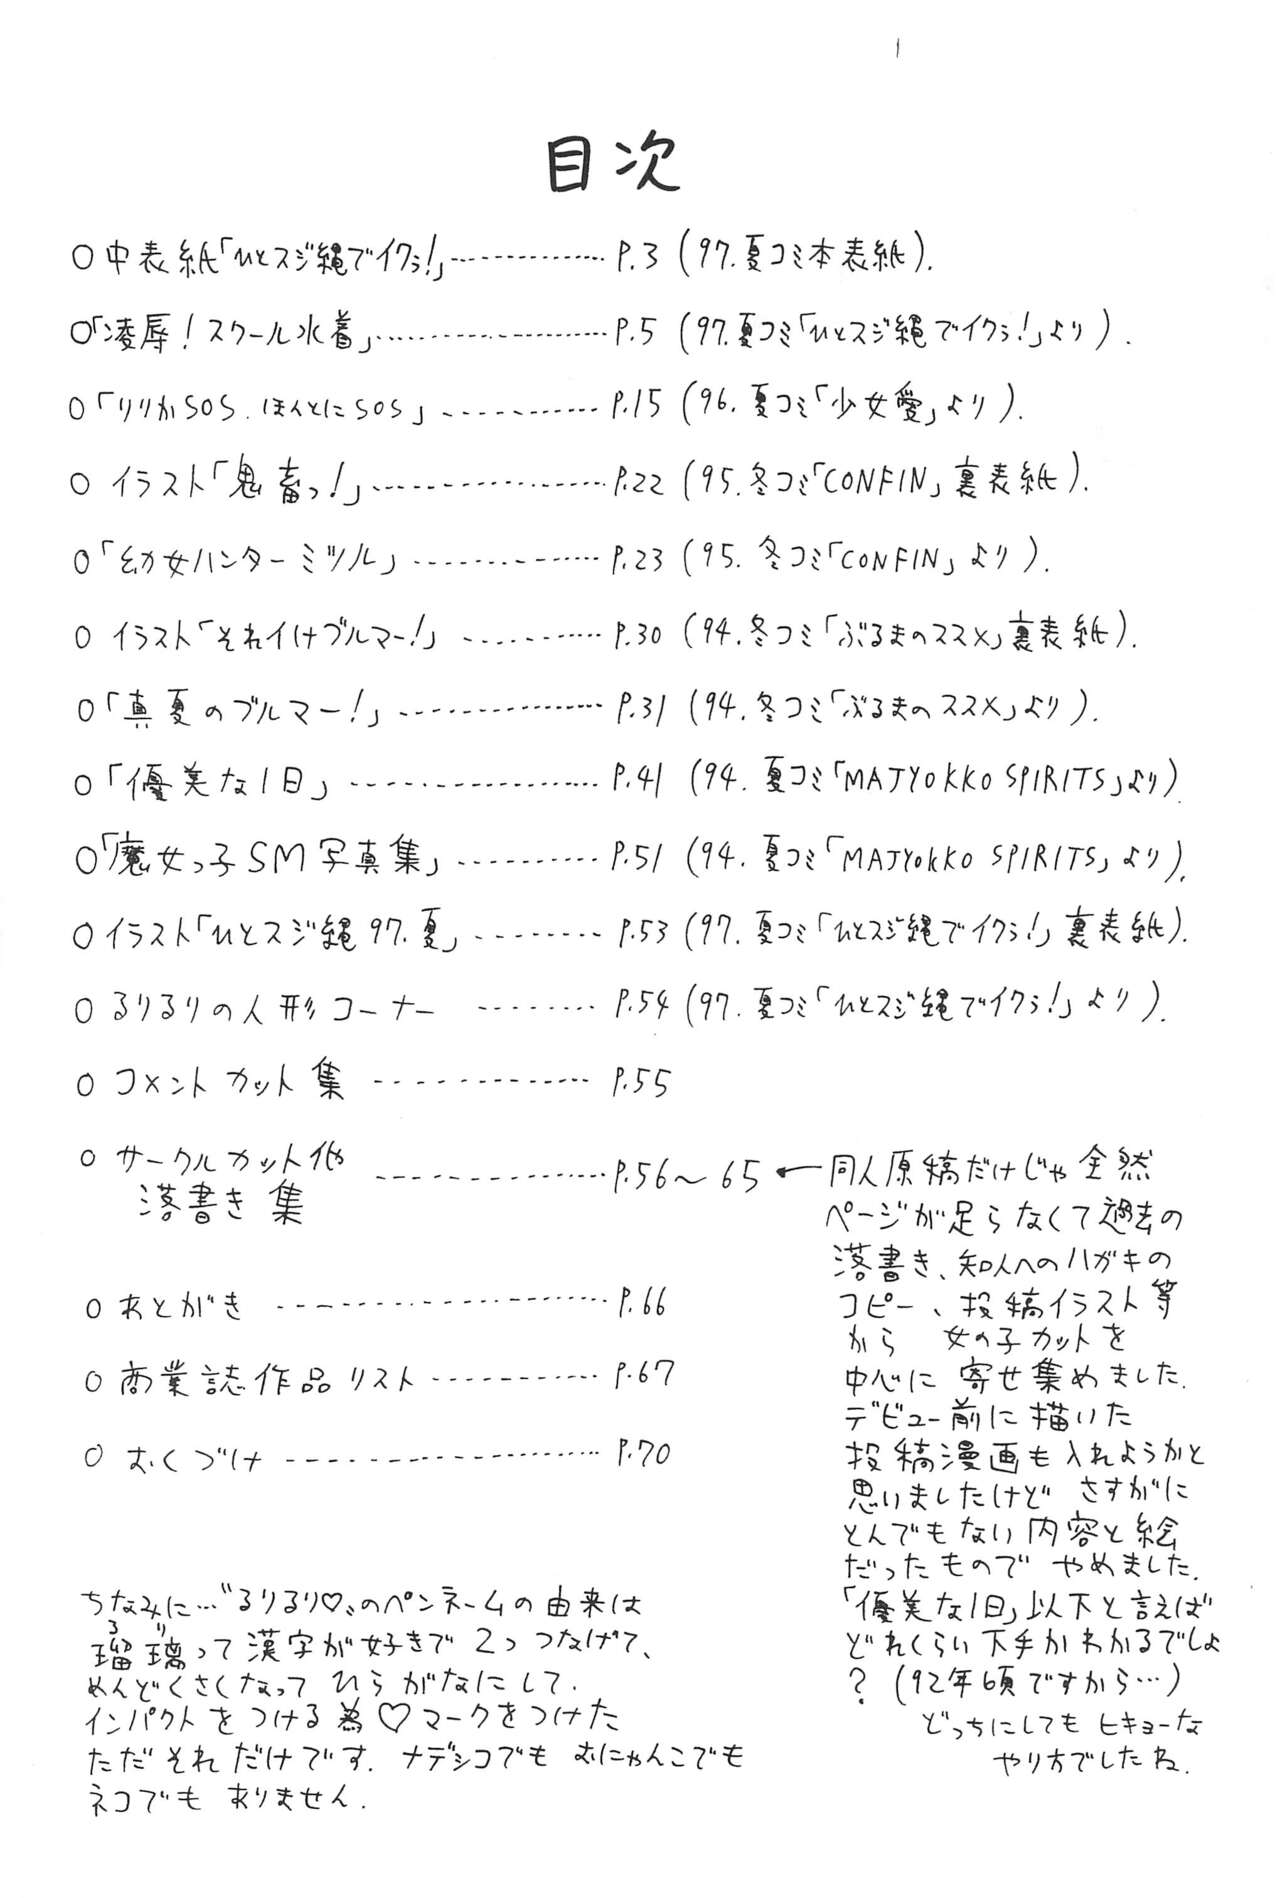 目次
○中表紙「ひとスジ縄でイクぅ!」 P.3 (97.夏コミ本表紙).
○「凌辱!スクール水着」 P.5 (97.夏コミ「ひとスジ縄でイクぅ!」より).
○「りりかSOS.ほんとにSOS」 P.15 (96.夏コミ「少女愛」より).
○イラスト「鬼畜っ!」 P.22 (95.冬コミ「CONFIN」裏表紙).
○「幼女ハンターミツル」 P.23 (95.冬コミ「CONFIN」より).
○イラスト「それイけブルマー!」 P.30 (94.冬コミ「ぶるまのススメ」裏表紙).
○「真夏のブルマー!」 P.31 (94.冬コミ「ぶるまのススメ」より).
○「優美な1日」 P.41 (94.夏コミ「MAJYOKKO SPIRITS」より)
○「魔女っ子SM写真集」 P.51 (94.夏コミ「MAJYOKKO SPIRITS」より).
○イラスト「ひとスジ縄97.夏」 P.53 (97.夏コミ「ひとスジ縄でイクぅ!」裏表紙).
○るりるりの人形コーナー P.54 (97.夏コミ「ひとスジ縄でイクぅ!」より).
○コメントカット集 P.55
○サークルカット他
落書き集 P.56〜65
○あとがき P.66
○商業誌作品リスト P.67
○おくづけ P.70
←同人原稿だけじゃ全然
ページが足らなくて過去の
落書き、知人へのハガキの
コピー、投稿イラスト等
から 女の子カットを
中心に寄せ集めました.
デビュー前に描いた
投稿漫画も入れようかと
思いましたけど さすがに
とんでもない内容と絵
だったもので やめました.
「優美な1日」以下と言えば
どれくらい下手かわかるでしょ
? (92年頃ですから…)
どっちにしてもヒキョーな
やり方でしたね.
ちなみに…"るりるり♡"のペンネームの由来は
るり
瑠璃って漢字が好きで2つつなげて、
めんどくさくなってひらがなにして.
インパクトをつける為♡マークをつけた
ただそれだけです. ナデシコでも おにゃんこでも
ネコでも ありません.